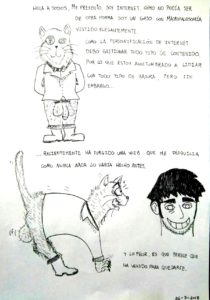 HOLA A TODOS, ME PRESENTO, SOY INTERNET, COMO NO PODÍA SER
DE OTRA FORMA SOY UN GATO CON MACROFALOSOMÍA
VESTIDO ELEGANTEMENTE.
COMO LA PERSONIFICACIÓN DE INTERNET
DEBO GESTIONAR TODO TIPO DE CONTENIDO.
POR LO QUE ESTOY ACOSTUMBRADO A LIDIAR
CON TODO TIPO DE BASURA PERO SIN
EMBARGO...
...RECIENTEMENTE HA SURGIDO UNA WEB QUE ME REPUGNA
COMO NUNCA NADA LO HABÍA HECHO ANTES.
Y LO PEOR, ES QUE PARECE QUE
HA VENIDO PARA QUEDARSE.